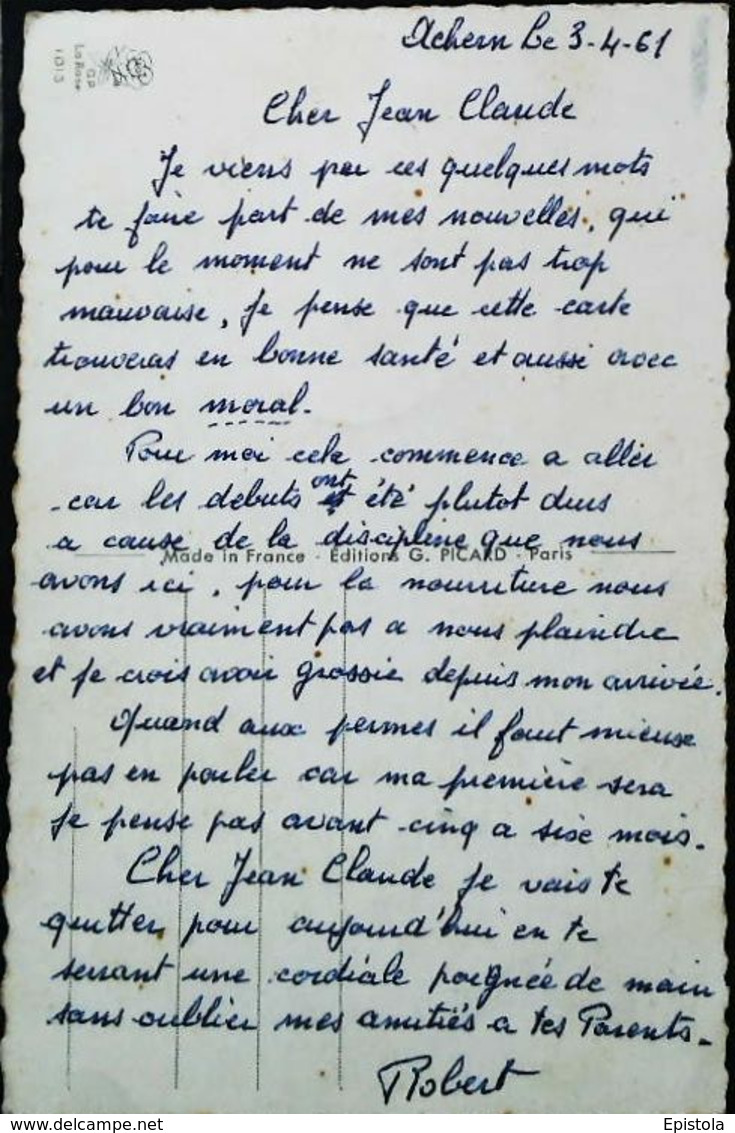 Achern Le 3-4-61
GP
La Rose
1013
Cher Jean Claude
Je viens par ces quelques mots
te faire part de mes nouvelles, qui
pour le moment ne sont pas trop
mauvaise, Je pense que cette carte
trouveras en bonne santé et aussi avec
un bon moral.
Pour moi cela commence a aller
car les debuts ont été plutot durs
a cause de la discipline que nous
Made in France - Éditions G. PICARD - Paris
avons ici, pour la nourriture nous
avons vraiment pas a nous plaindre
et je crois avoir grossie depuis mon arrivée.
Quand aux permes il faut mieuse
pas en parler car ma première sera
Je pense pas avant cinq a sixe mois.
Cher Jean Claude Je vais te
quitter pour aujourd'hui en te
serrant une cordiale poignée de main
sans oublier mes amitiés a tes Parents.
Robert
Epistola